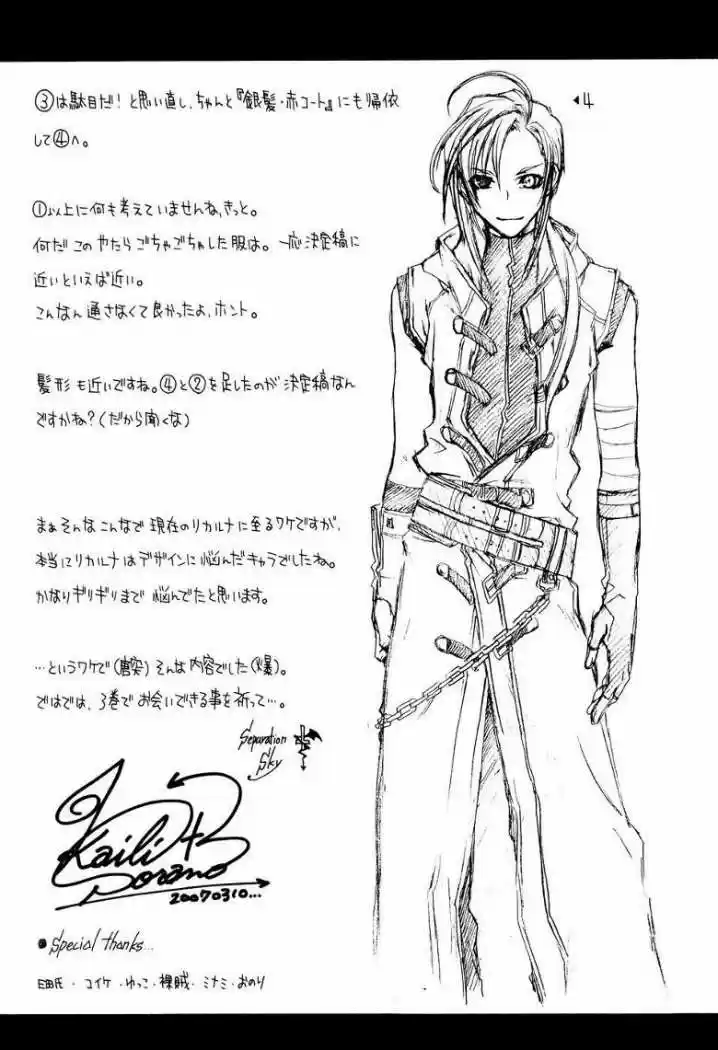 ③は駄目だ！と思い直し、ちゃんと『銀髪・赤コート』にも帰依
して④へ。
◀4
①以上に何も考えていませんね、きっと。
何だこのやたらごちゃごちゃした服は。一応決定稿に
近いといえば近い。
こんなん通さなくて良かったよ、ホント。
髪形も近いですね。④と②を足したのが決定稿なん
ですかね？(だから聞くな)
まぁそんなこんなで現在のリカルナに至るワケですが、
本当にリカルナはデザインに悩んだキャラでしたね。
かなりギリギリまで悩んでたと思います。
…というワケで(唐突)そんな内容でした(爆)。
ではでは、3巻でお会いできる事を祈って…。
Separation
Sky
Kaili
Sorano
20070310...
●Special thanks...
コイケ・ゆっこ・裸賊・ミナミ・おのり